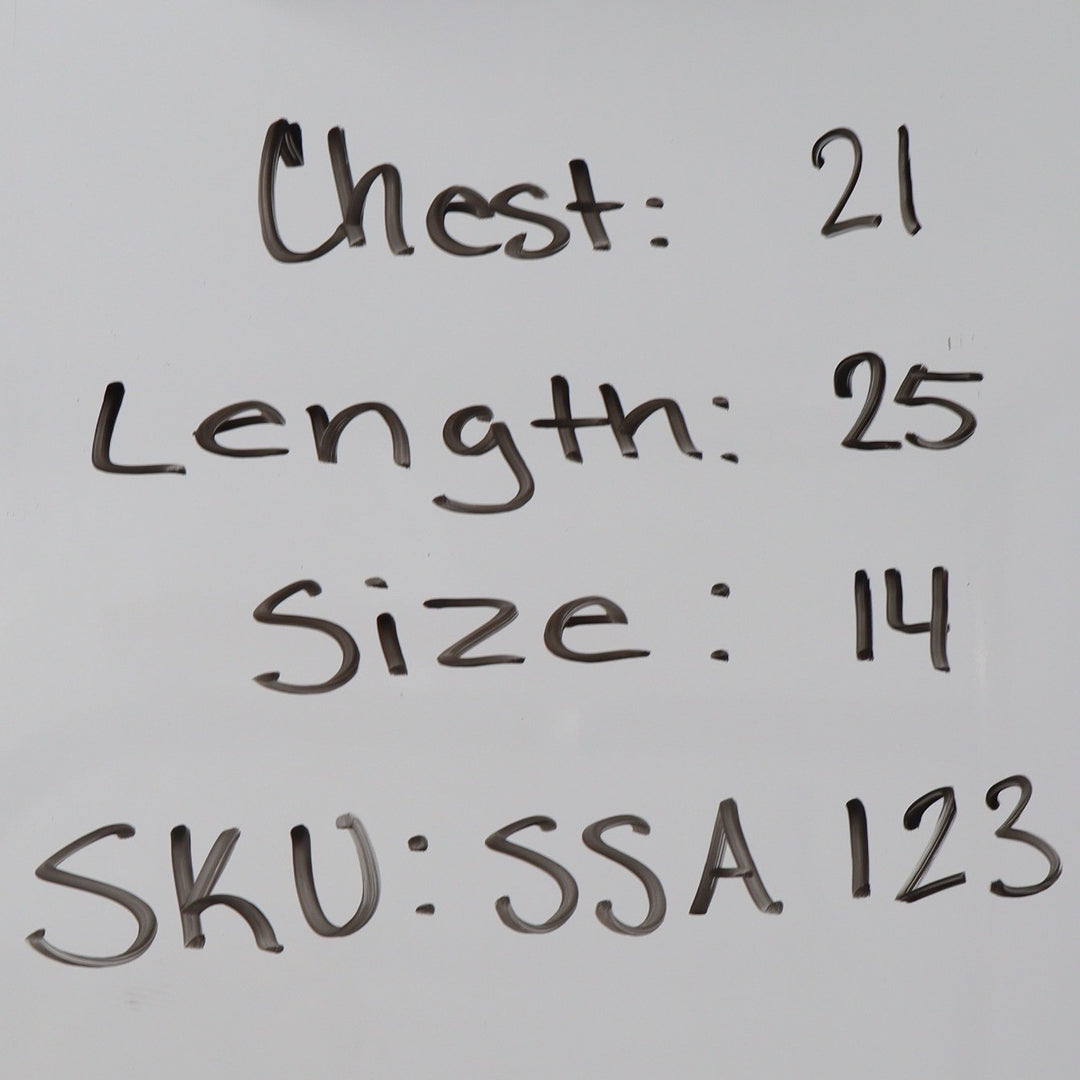 Chest: 21
Length: 25
Size: 14
SKU: SSA 123